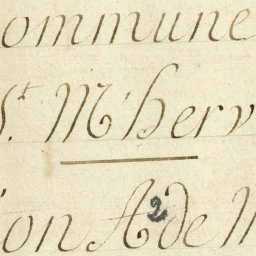 ommune
St. M'herv
on A de
2